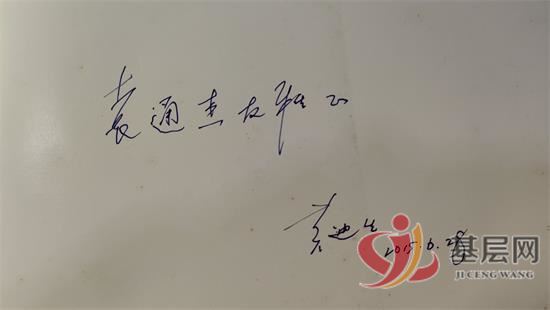 袁通杰友雅正
迪生
2015.6.28
基层网
JI CENG WANG